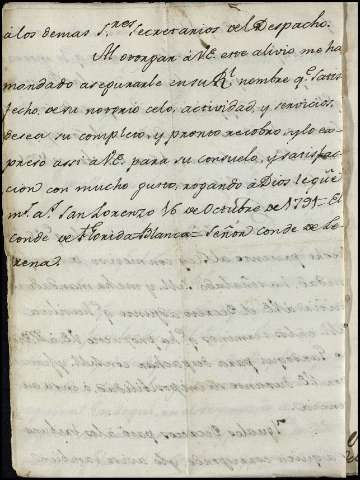 á los demas S.res Secretarios del Despacho.
Al otorgar á V.E. este alivio me ha
mandado asegurarle en su R.l nombre q.e satis
fecho de su notorio celo, actividad, y servicios,
desea su completo, y pronto recobro, y lo ex
preso assi á V.E. para su consuelo, y satisfac
cion con mucho gusto, rogando á Dios le gũe
m.s a.s San Lorenzo 16 de Octubre de 1791= El
conde de Florida-Blanca= Señor conde de Le
rena.